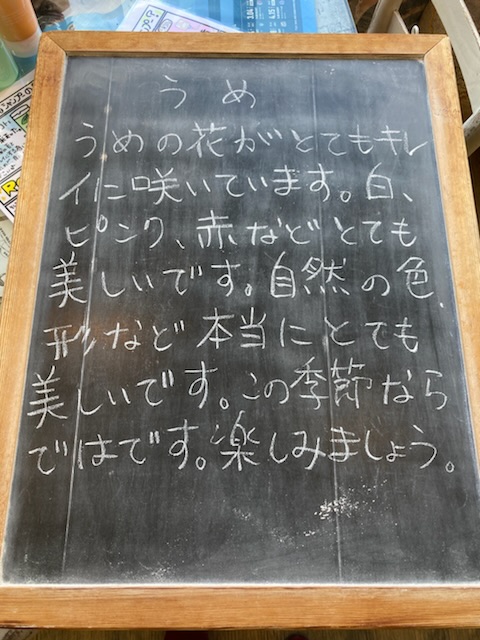 うめ
うめの花がとてもキレ
イに咲いています。白、
ピンク、赤などとても
美しいです。自然の色、
形など本当にとても
美しいです。この季節なら
ではです。楽しみましょう。